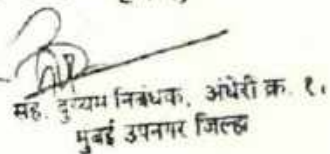 सह. दुय्यम निबंधक, अंधेरी क्र. १,
मुंबई उपनगर जिल्हा